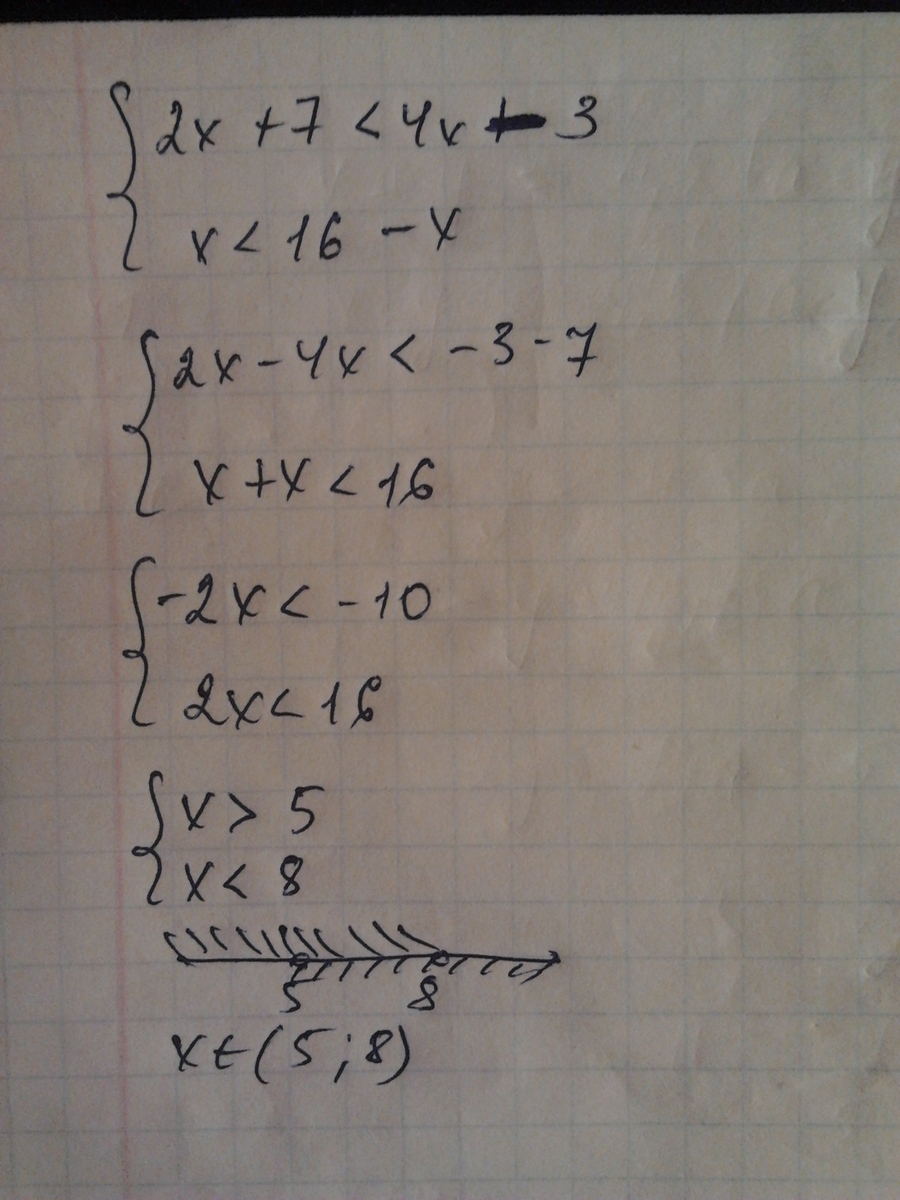 2x + 7 < 4x - 3
x < 16 - x
2x - 4x < -3 - 7
x + x < 16
-2x < -10
2x < 16
x > 5
x < 8
5 8
x ∈ (5; 8)